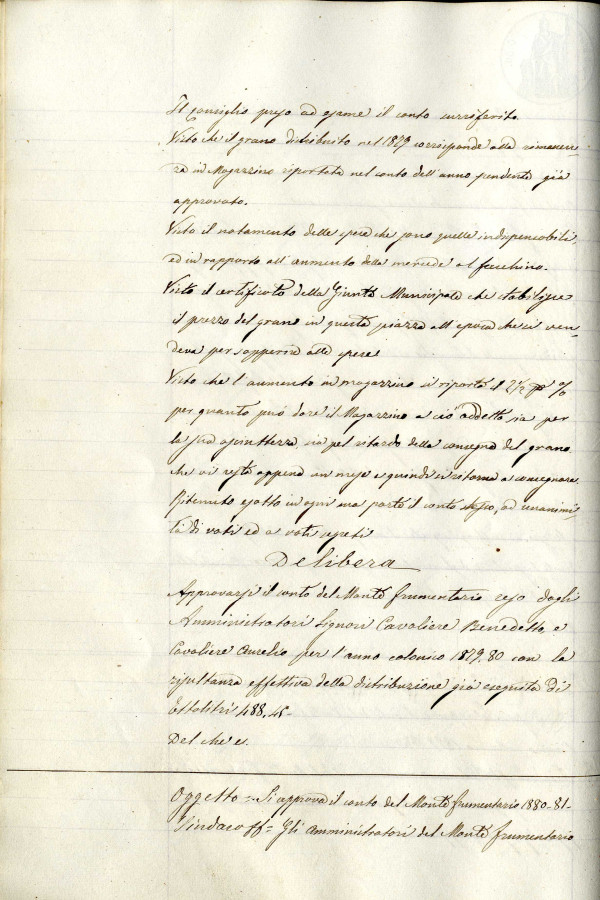 Il Consiglio preso ad esame il conto surriferito.
Visto che il grano distribuito nel 1879 corrisponde alla rimanen-
za in Magazzino riportata nel conto dell'anno pendente già
approvato.
Visto il notamento delle spese che sono quelle indispensabili,
ed in rapporto all'aumento della mercede al facchino.
Visto il certificato della Giunta Municipale che stabilisce
il prezzo del grano in questa piazza all'epoca che si ven-
deva per sopperire alle spese
Visto che l'aumento in magazzino si riportò il 2½ p %
per quanto può dare il Magazzino a ciò addetto sia per
la sua asciuttezza, sia pel ritardo della consegna del grano,
che vi resta appena un mese e quindi si ritorna a consegnare.
Ritenuto esatto in ogni sua parte il conto stesso, ad unanimi-
tà di voti ed a voti segreti
Delibera
Approvarsi il conto del Monte frumentario reso dagli
Amministratori Signori Cavaliere Benedetto, e
Cavaliere Aurelio per l'anno colonico 1879.80 con la
risultanza effettiva della distribuzione già eseguita di
Ettolitri 488.45-
Del che e.
Oggetto = Si approva il conto del Monte frumentario 1880-81-
Sindaco ff = Gli Amministratori del Monte frumentario